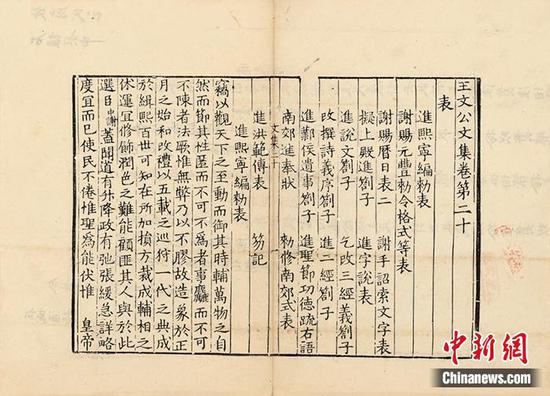 王文公文集卷第二十
表
進熙寧編勑表
謝賜元豐勑令格式等表
謝賜曆日表二 謝手詔索文字表
擬上殿進劄子 進字說表
進說文劄子 乞改三經義劄子
改撰詩義序劄子 進二經劄子
進鄴侯遺事劄子 進聖節功德疏右語
南郊進奉狀 勑修南郊式表
進洪範傳表 笏記
文集二十 一
進熙寧編勑表
竊以觀天下之至動而御其時輔萬物之自
然而節其性匿而不可不爲者事麤而不可
不陳者法歌惟無弊乃以不膠故造象於正
月之始和改禮以五載之巡狩一代之典成
於緝熙百世可知在所加損方裁成輔相之
休運宜修飾潤色之難能顧匪其人與於此
選臣中謝蓋聞道有升降政有弛張緩急詳略
度宜而已使民不倦惟聖爲能伏惟 皇帝
中新網
Chinanews.com